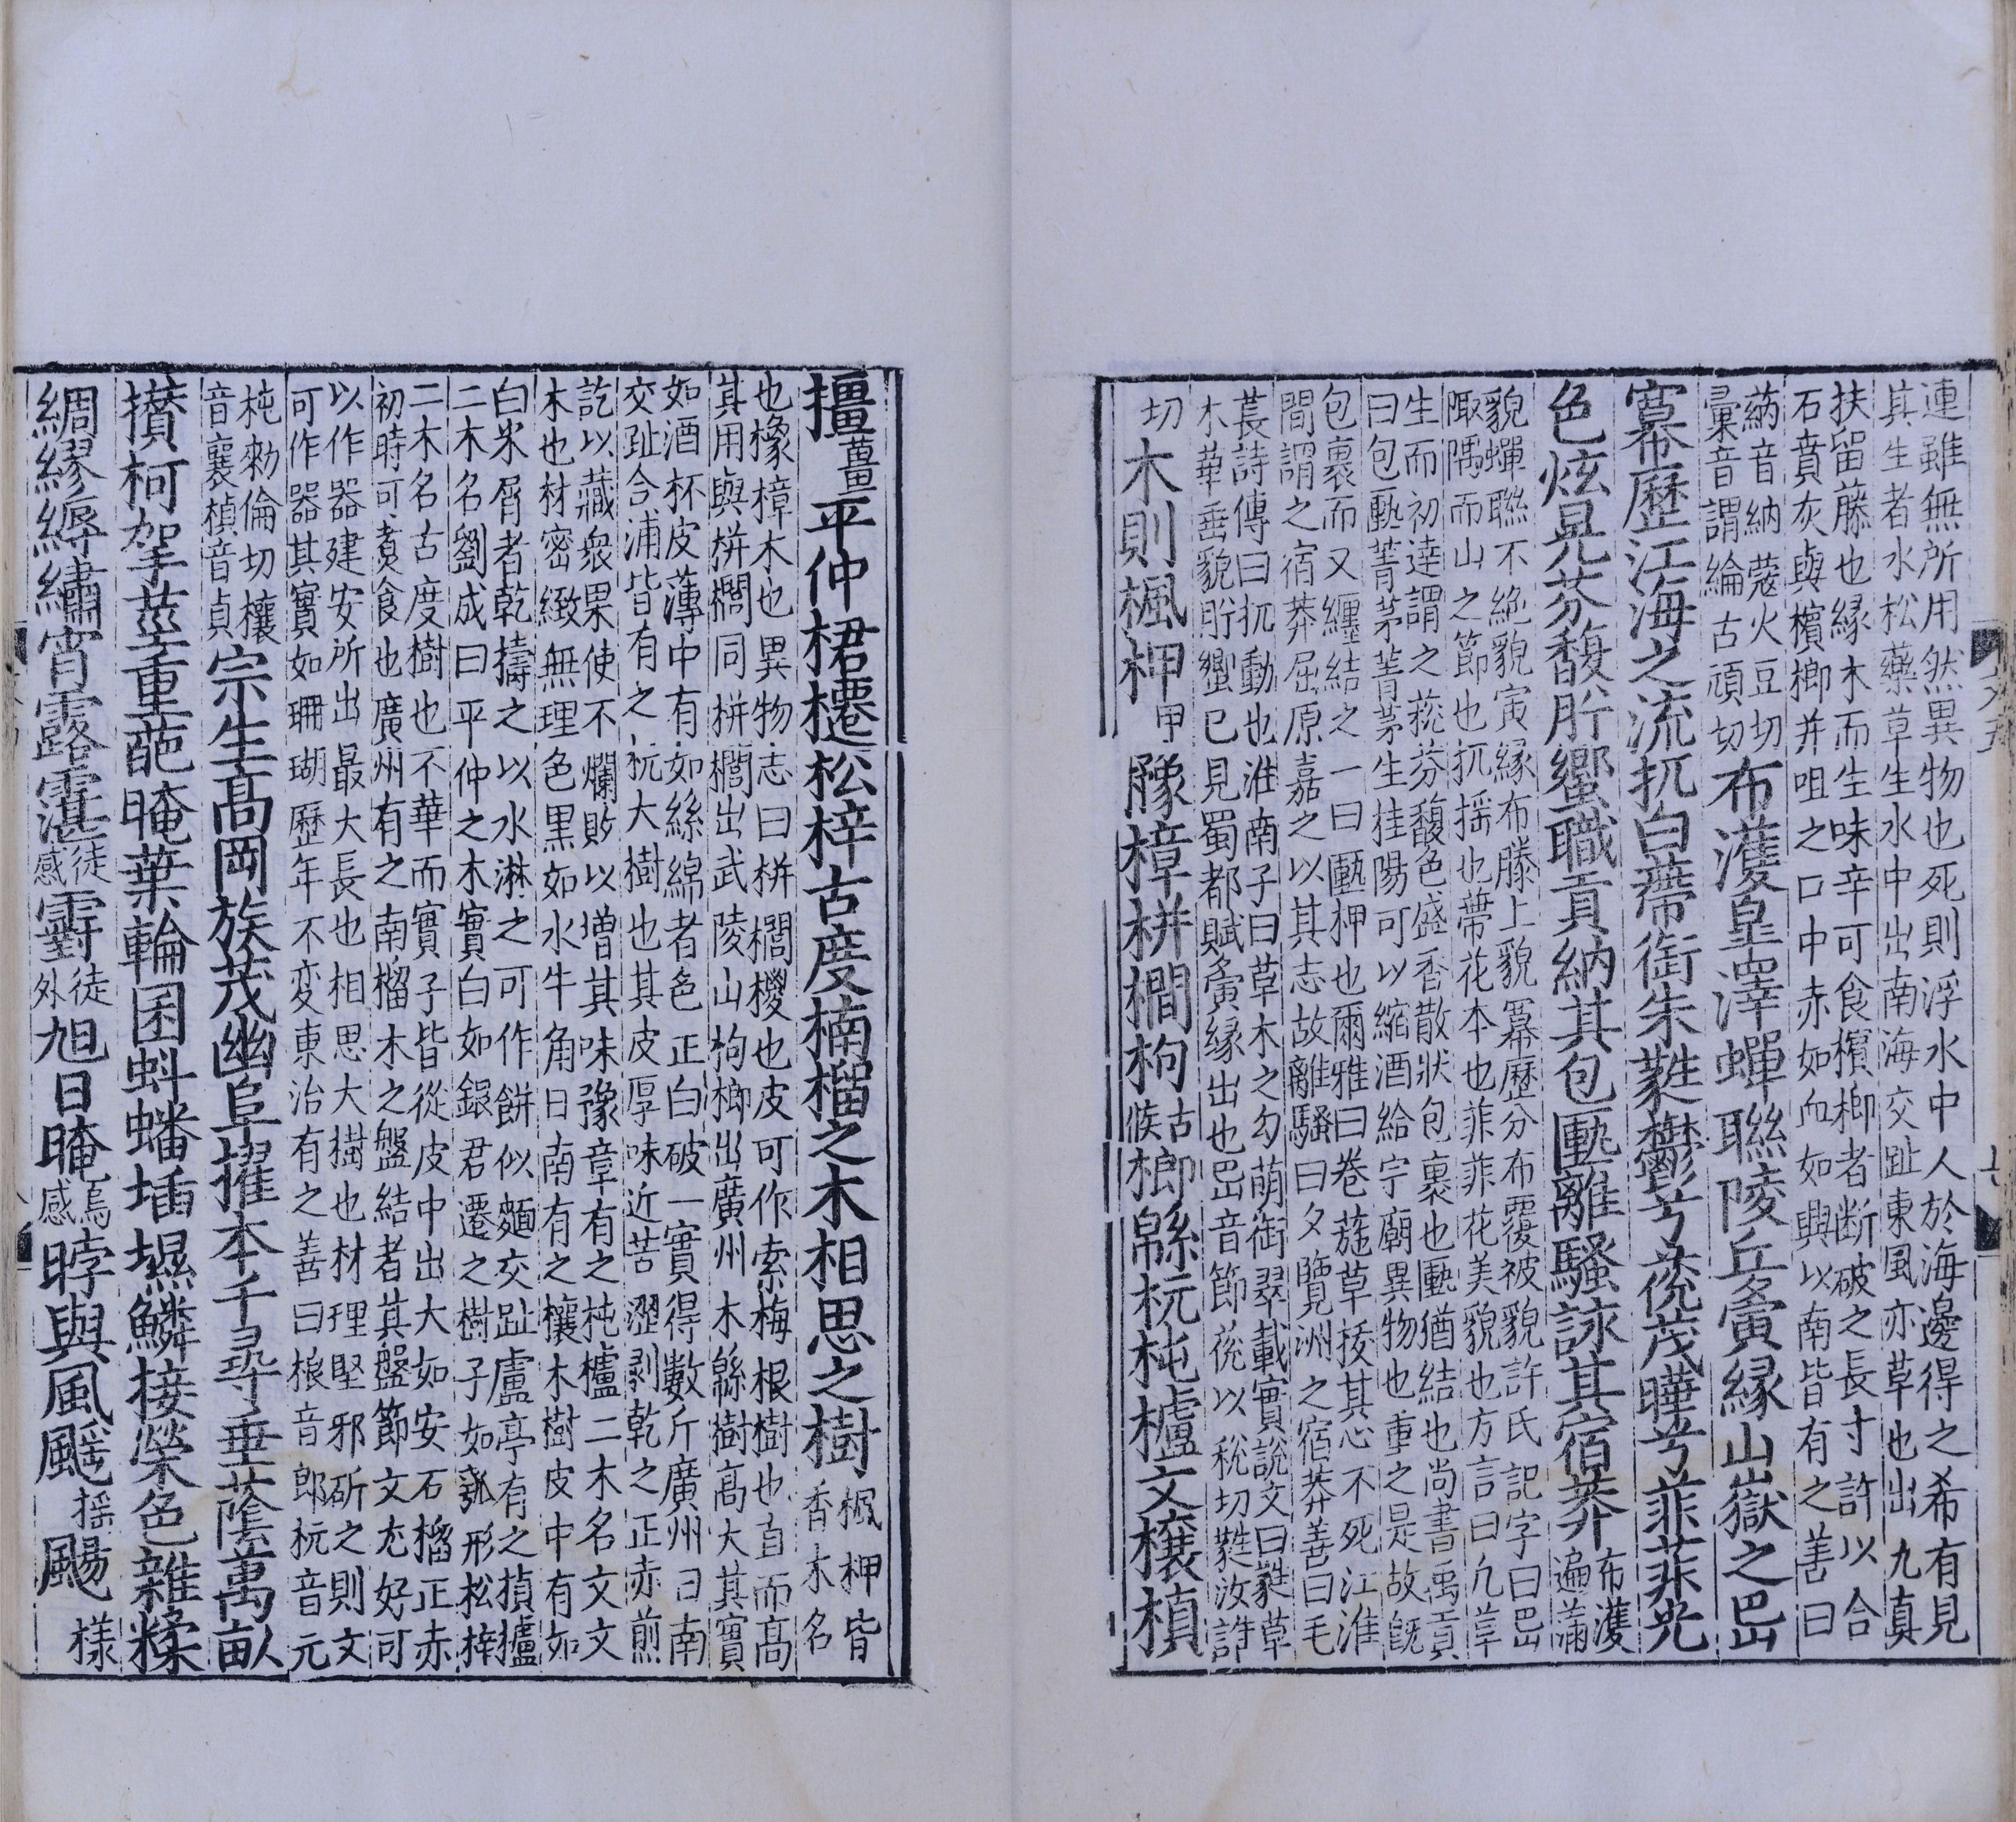 連雖無所用然異物也死則浮水中人於海邊得之希有見
其生者水松藥草生水中出南海交趾東風亦草也出九真
扶留藤也縁木而生味辛可食檳榔者断破之長寸許以合
石賁灰與檳榔并咀之口中赤如血如興以南皆有之善曰
蒳音納蔻火豆切
彙音謂綸古頑切
布濩皐澤蟬聯陵丘夤縁山嶽之岊
冪歷江海之流扤白蔕銜朱蕤鬱兮茷茂曄兮菲菲光
色炫晃芬馥肸蠁職貢納其包匭離騷詠其宿莽
布濩
遍滿
貌蟬聯不絶貌夤縁布滕上貌冪歷分布覆被貌許氏記字曰岊
陬隅而山之節也扤揺也蔕花本也菲菲花美貌也方言曰凡草
生而初達謂之茷芬馥色盛香散狀包裹也匭猶結也尚書禹貢
曰包匭菁茅菁茅生桂陽可以縮酒給宗廟異物也重之是故既
包裹而又纏結之一曰匭押也爾雅曰卷葹草拔其心不死江淮
間謂之宿莽屈原嘉之以其志故離騷曰夕攬洲之宿莽善曰毛
萇詩傳曰扤動也淮南子曰草木之勾萌銜翠載實說文曰蕤草
木華垂貌肸蠁已見蜀都賦夤縁出也岊音節茷以稅切蕤汝誰
切
木則楓柙甲櫲樟栟櫚枸古候榔緜杬杶櫨文欀楨
橿薑平仲桾櫏松梓古度楠榴之木相思之樹
楓柙皆
香木名
也櫲樟木也異物志曰栟櫚椶也皮可作索梅根樹也直而高
其用與栟櫚同栟櫚出武陵山枸榔出廣州木緜樹高大其實
如酒杯皮薄中有如絲綿者色正白破一實得數斤廣州日南
交趾合浦皆有之杬大樹也其皮厚味近苦澀剥乾之正赤煎
訖以藏衆果使不爛敗以增其味豫章有之杶櫨二木名文文
木也材密緻無理色黒如水牛角日南有之欀木樹皮中有如
白米屑者乾擣之以水淋之可作餅似麵交趾盧亭有之楨橿
二木名劉成曰平仲之木實白如銀君遷之樹子如瓠形松梓
二木名古度樹也不華而實子皆從皮中出大如安石榴正赤
初時可煮食也廣州有之南榴木之盤結者其盤節文尤好可
以作器建安所出最大長也相思大樹也材理堅邪斫之則文
可作器其實如珊瑚歷年不変東治有之善曰桹音郎杬音元
杶勑倫切欀
音襄楨音貞
宗生高岡族茂幽阜擢本千尋垂蔭萬畝
攢柯挐莖重葩晻葉輪囷蚪蟠插堁鱗接榮色雜糅
綢繆縟繡宵露霮徒感䨴徒外旭日晻烏感㫲與風飖揺颺樣